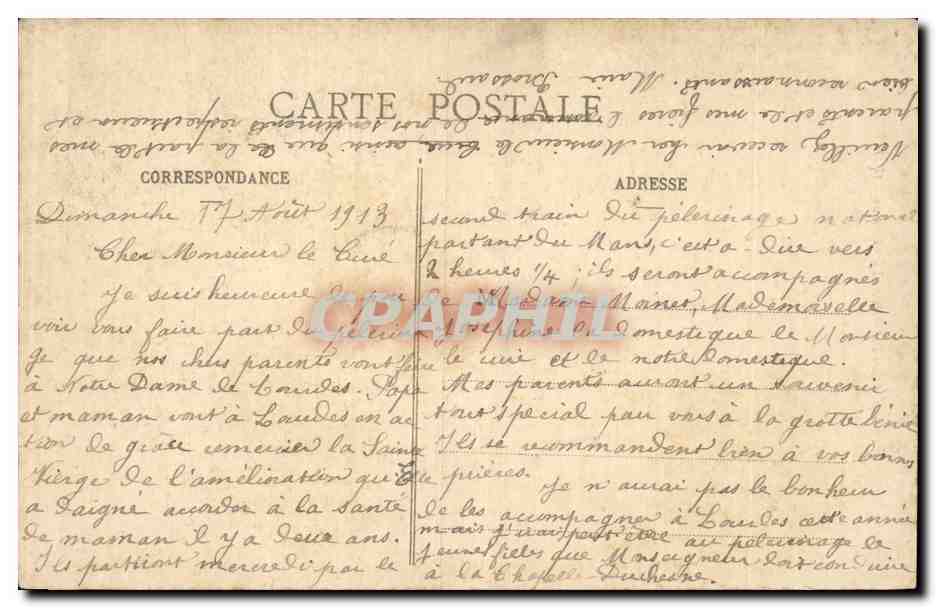 CARTE POSTALE
CORRESPONDANCE
Dimanche 17 Août 1913
Cher Monsieur le Curé
Je suis heureuse de pou
voir vous faire part du pèlerina
ge que nos chers parents vont faire
à Notre Dame de Lourdes. Papa
et maman vont à Lourdes en ac
tion de grâce remercier la Sainte
Vierge de l'amélioration qu'Elle
a daigné accorder à la santé
de maman il y a deux ans.
Ils partiront mercredi par le
ADRESSE
second train du pèlerinage national
partant du Mans, c'est a-dire vers
2 heures 1/4; ils seront accompagnés
de Madame Moinet, Mademoiselle
Joséphine la domestique de Monsieur
le curé et de notre domestique.
Mes parents auront un souvenir
tout spécial pour vous à la grotte bénie
Ils se recommandent bien à vos bonnes
prières.
Je n'aurai pas le bonheur
de les accompagner à Lourdes cette année
mais j'irai peut être au pèlerinage de
jeunes filles que Monseigneur doit conduire
à la Chapelle Duchesne.
Veuillez recevoir cher Monsieur le Curé, ainsi que de la part de mes
parents et de mes frères l'hommage de nos sentiments respectueux et
bien reconnaissants. Marie Brossard
CPAPHIL